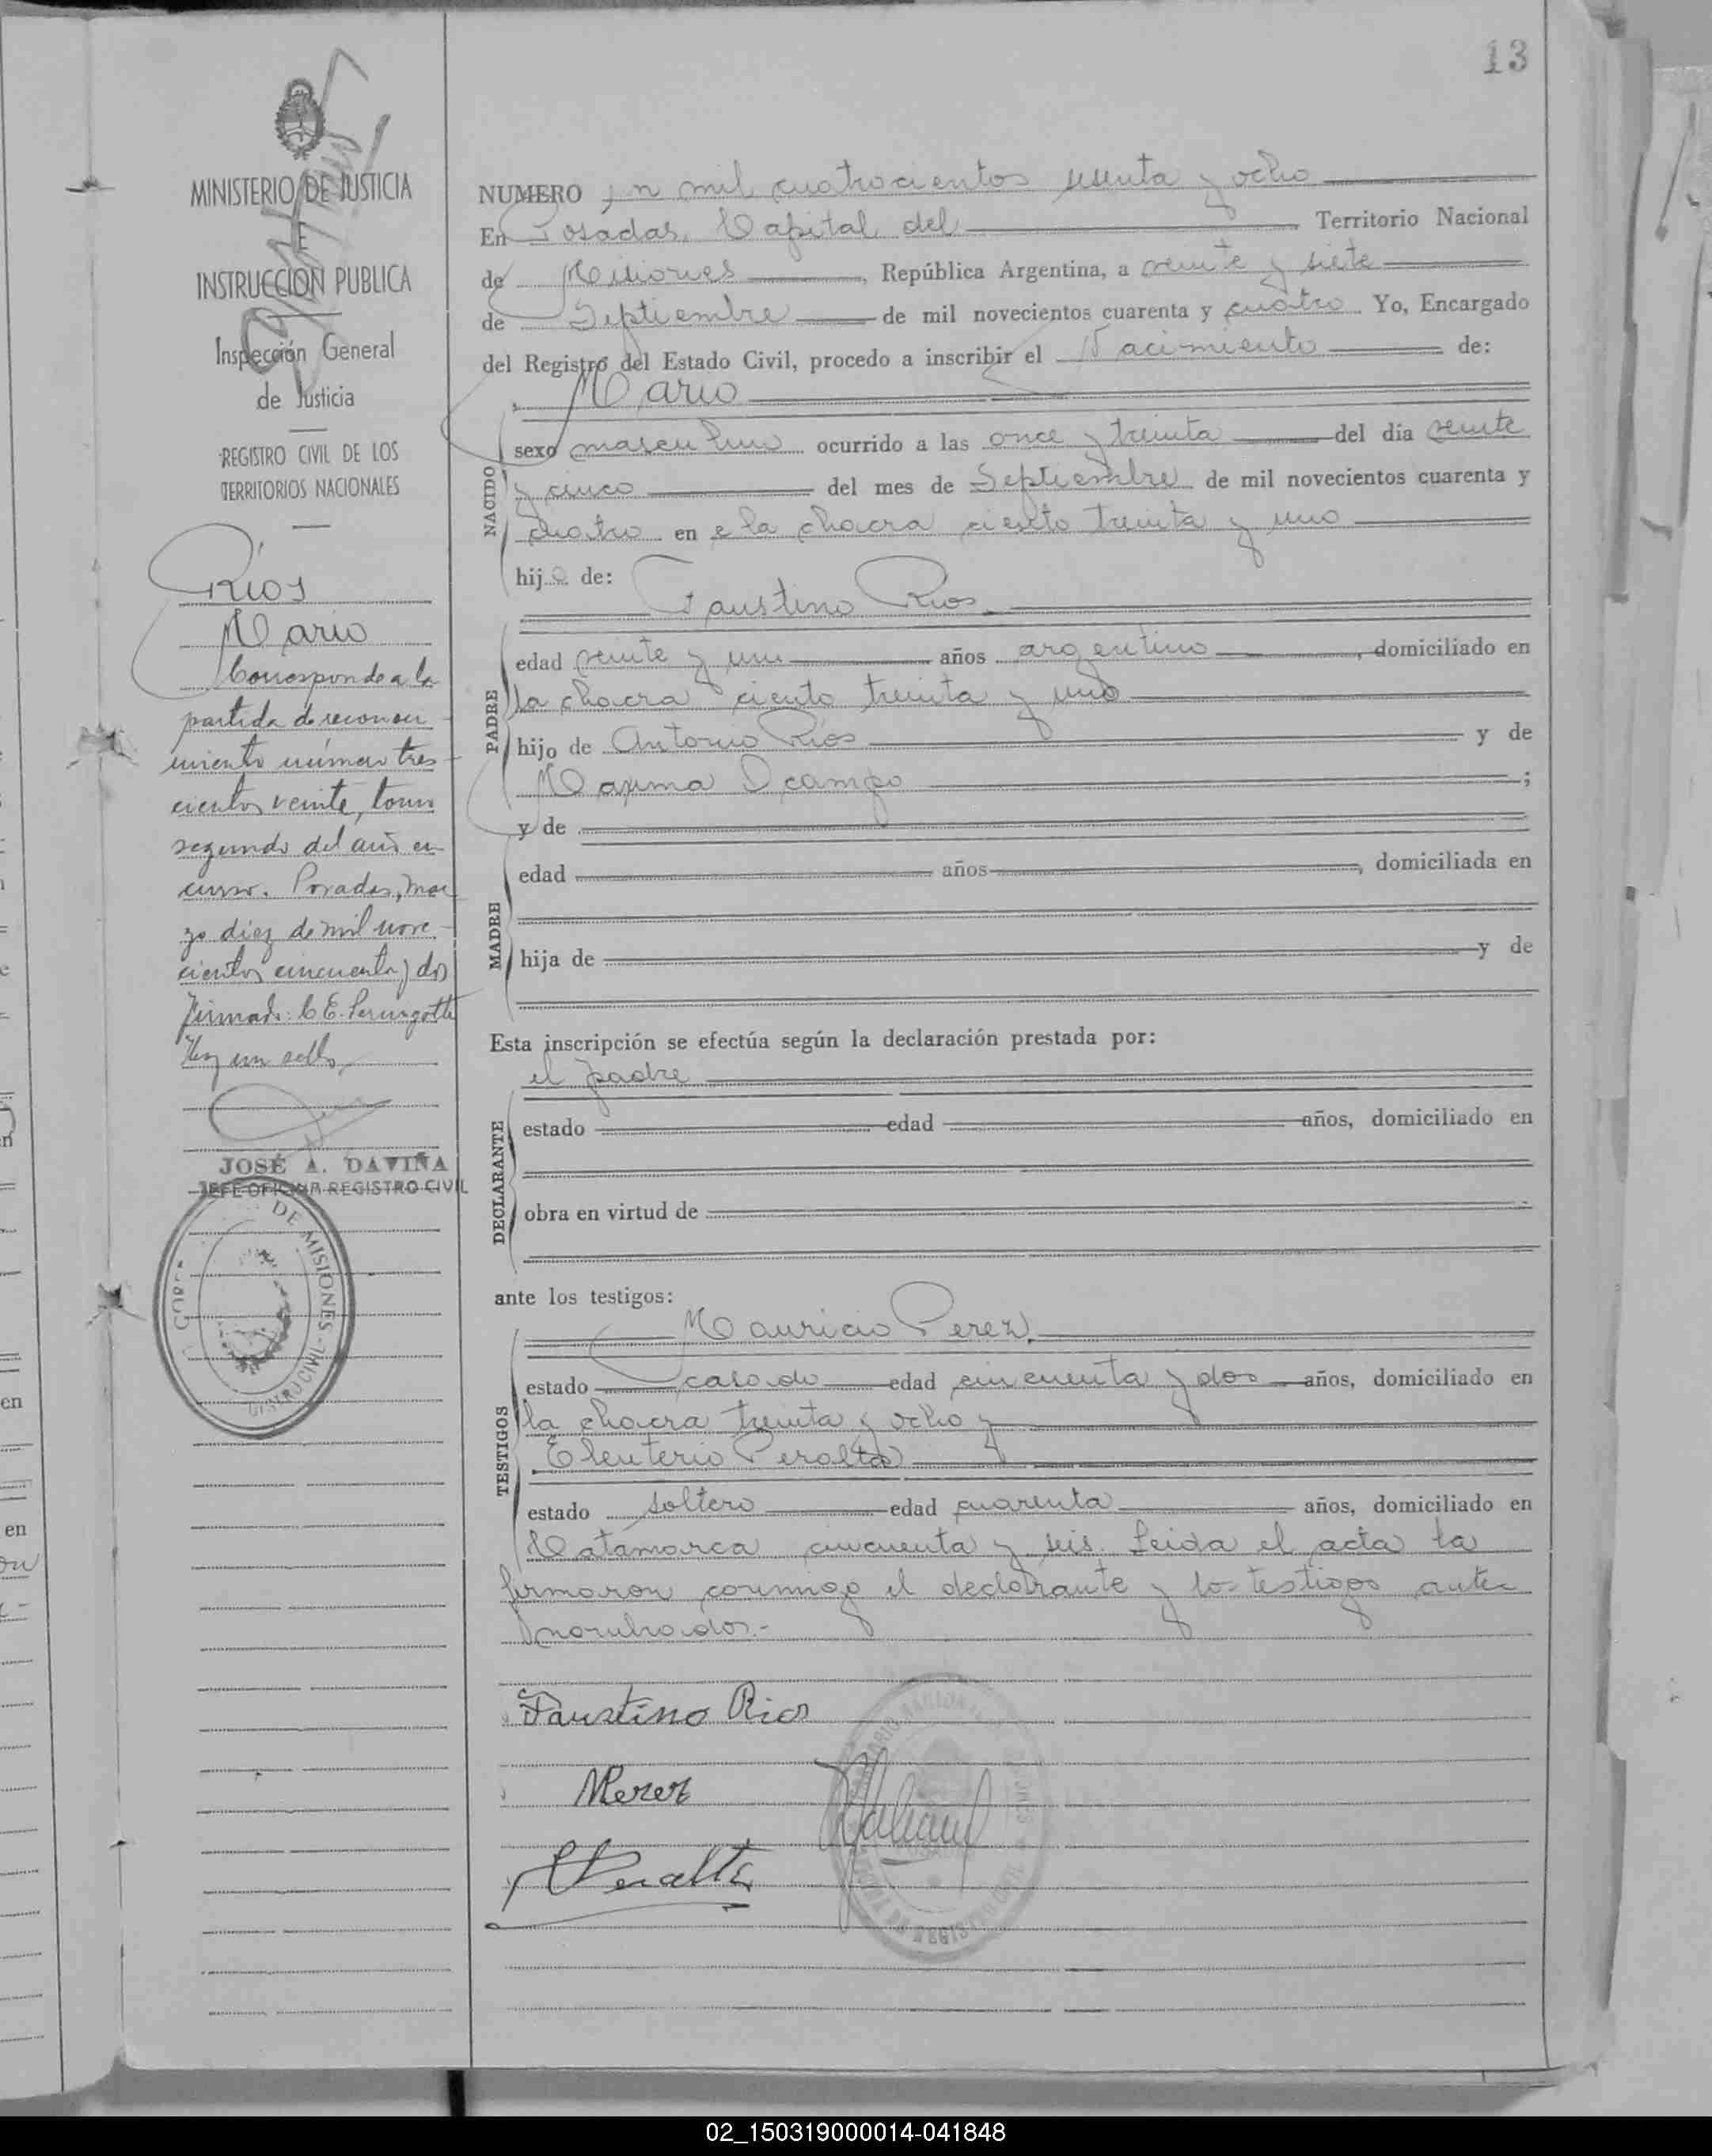 13
MINISTERIO DE JUSTICIA
E
INSTRUCCION PUBLICA
Inspección General
de Justicia
REGISTRO CIVIL DE LOS
TERRITORIOS NACIONALES
Rios
Mario
Corresponde a la
partida de reconoci
miento número tres
cientos veinte, tomo
segundo del año en
curso. Posadas, mar
zo diez de mil nove
cientos cincuenta y dos
Firmado: C. E.
Hay un sello
JOSÉ A. DAVIÑA
JEFE OFICINA REGISTRO CIVIL
DE MISIONES -
NUMERO mil cuatrocientos sesenta y ocho
En Posadas, Capital del Territorio Nacional
de Misiones, República Argentina, a veinte y siete
de Septiembre de mil novecientos cuarenta y cuatro Yo, Encargado
del Registro del Estado Civil, procedo a inscribir el Nacimiento de:
Mario
NACIDO
sexo masculino ocurrido a las once y treinta del día veinte
y cinco del mes de Septiembre de mil novecientos cuarenta y
cuatro en la chacra ciento treinta y uno
hijo de:
Faustino Rios
PADRE
edad veinte y un años argentino, domiciliado en
la chacra ciento treinta y uno
hijo de Antonio Rios y de
Maxima Ocampo ;
y de
MADRE
edad años , domiciliada en
hija de y de
Esta inscripción se efectúa según la declaración prestada por:
el padre
DECLARANTE
estado edad años, domiciliado en
obra en virtud de
ante los testigos:
Mauricio Perez,
TESTIGOS
estado casado edad cincuenta y dos años, domiciliado en
la chacra treinta y ocho y
Eleuterio Peralta
estado soltero edad cuarenta años, domiciliado en
Catamarca cincuenta y seis. Leida el acta la
firmaron conmigo el declarante y los testigos ante
nombrados.-
Faustino Rios
MPerez
EPeralta
02_150319000014-041848